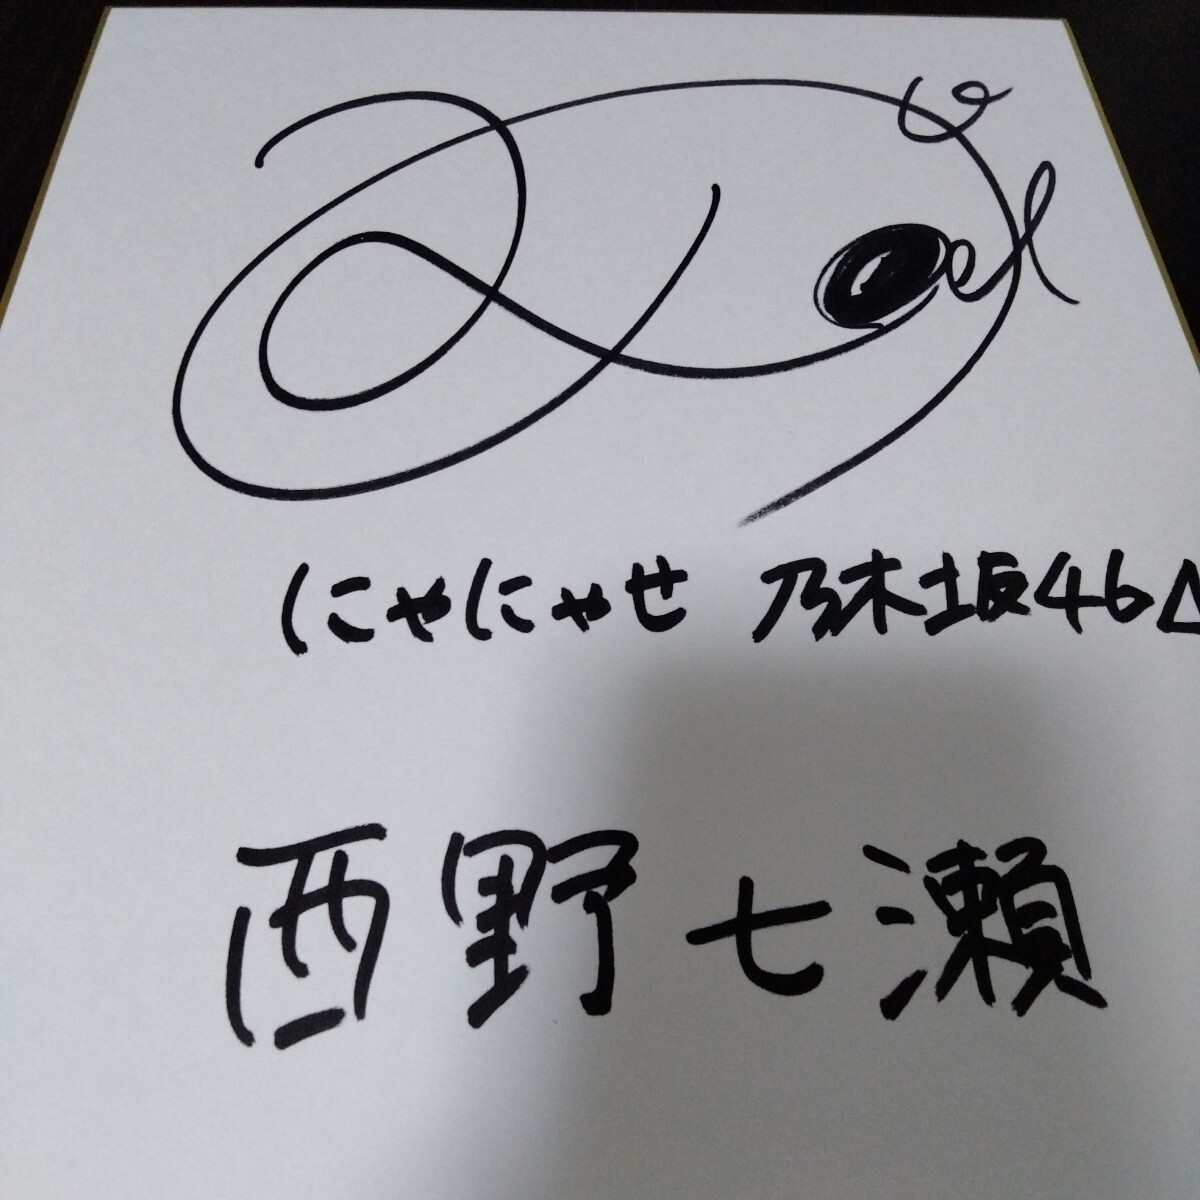 にゃにゃせ 乃木坂46△
西野七瀬